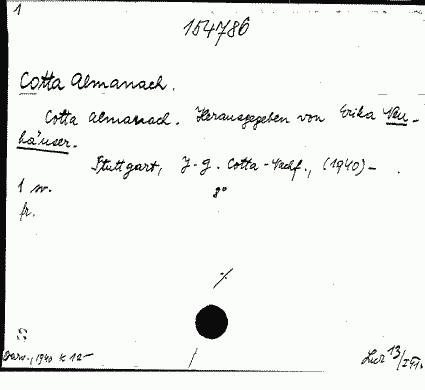 1
154786
Cotta Almanach.
Cotta Almanach. Herausgegeben von Erika Neu-
häuser.
Stuttgart, J. G. Cotta-Nachf., (1940) –
8°
1 w.
fr.
1940 K 12 –
13/XII.